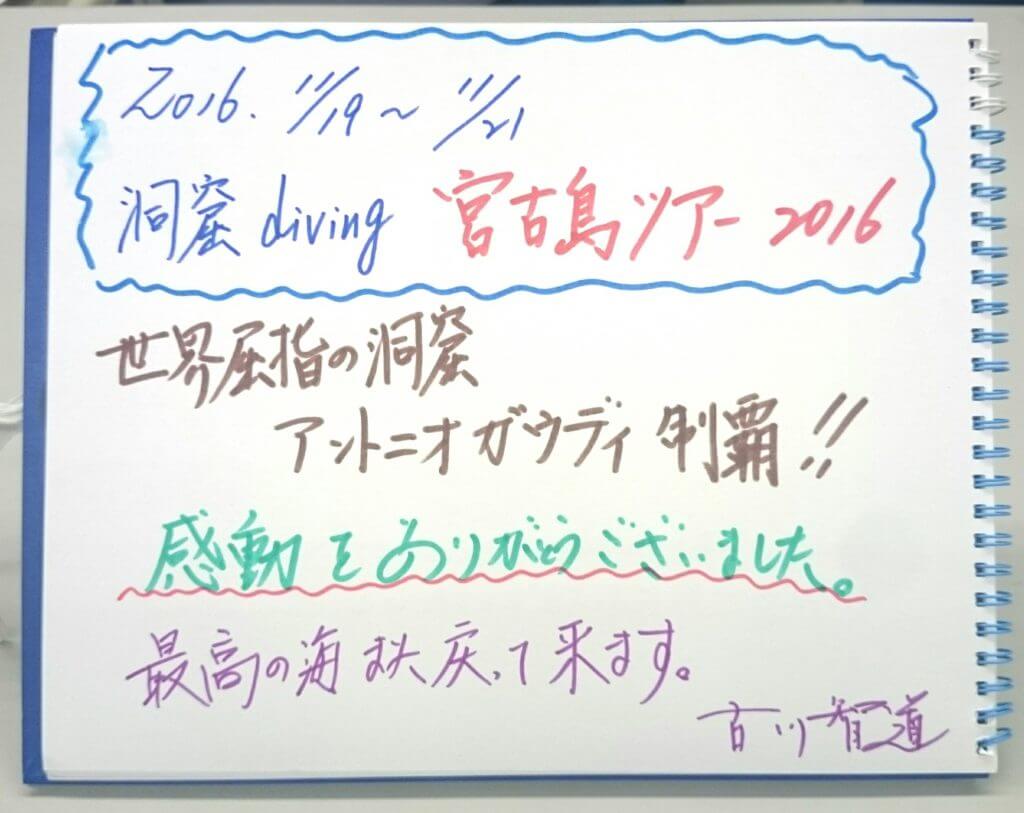 2016. 11/19~11/21
洞窟 diving 宮古島ツアー 2016
世界屈指の洞窟
アントニオガウディ制覇!!
感動をありがとうございました。
最高の海また戻って来ます。
百川智道